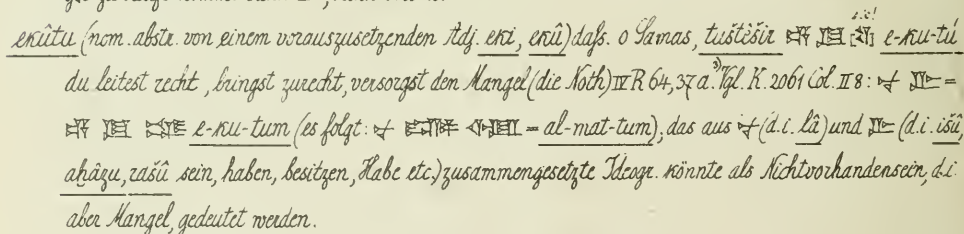 ekûtu (nom. abstr. von einem vorauszusetzenden Adj. eki, ekû) dafs. o Šamas, tuštêšir 𒂊 𒆪 [𒌅] e-ku-tú
du leitest recht, bringst zurecht, versorgst den Mangel (die Noth) IV R 64, 37a. ³) Vgl. K. 2061 Col. II 8: 𒉡 𒌇 =
𒂊 𒆪 𒌈 e-ku-tum (es folgt: = al-mat-tum), das aus 𒉡 (d.i. lâ) und 𒌇 (d.i. išû,
aḫâzu, rašû sein, haben, besitzen, Habe etc.) zusammengesetzte Ideogr. könnte als Nichtvorhandensein, d.i.
aber Mangel, gedeutet werden.